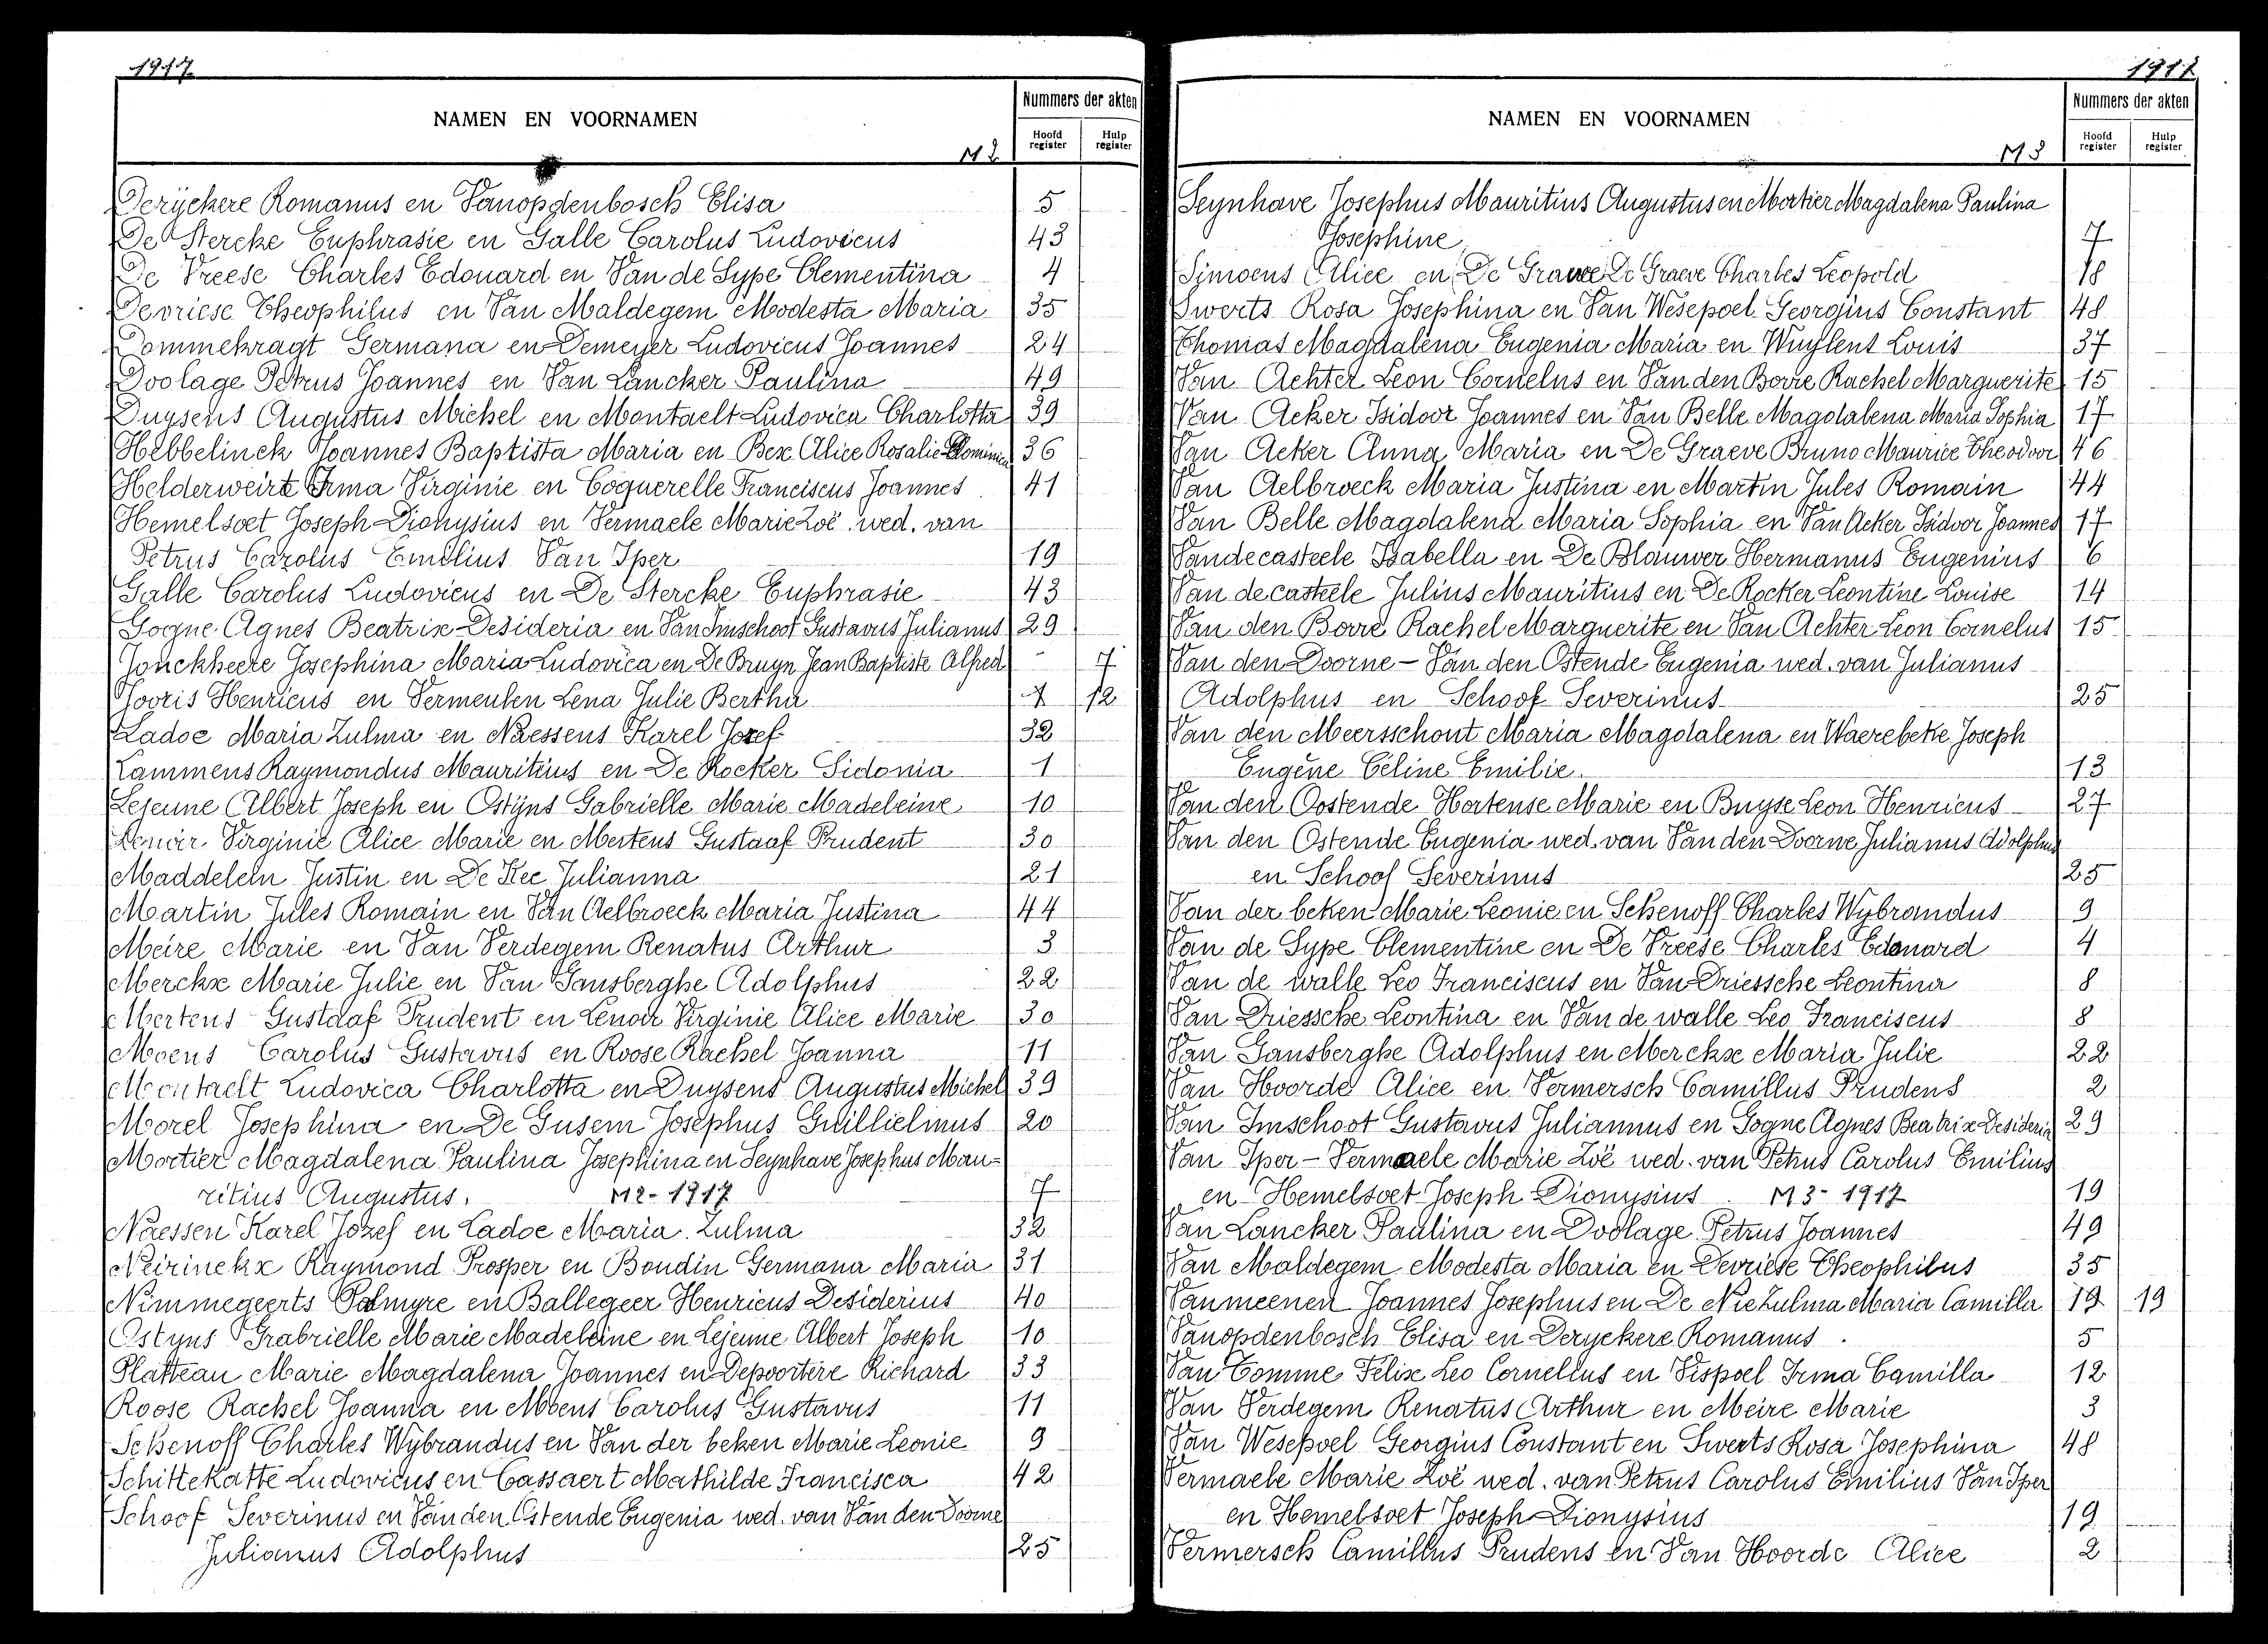 1917
NAMEN EN VOORNAMEN
Nummers der akten
Hoofd register
Hulp register
M 2
Derÿckere Romanus en Vanopdenbosch Elisa 5
De Stercke Euphrasie en Galle Carolus Ludovicus 43
De Vreese Charles Edouard en Van de Sype Clementina 4
Devriese Theophilus en Van Maldegem Modesta Maria 35
Dommekragt Germana en Demeyer Ludovicus Joannes 24
Doolage Petrus Joannes en Van Lancker Paulina 49
Duysens Augustus Michel en Montaelt Ludovica Charlotta 39
Hebbelinck Joannes Baptista Maria en Bex Alice Rosalie 36
Helderweirt Irma Virginie en Coquerelle Franciscus Joannes 41
Hemelsoet Joseph Dionysius en Vermaele Marie Zoë wed. van
Petrus Carolus Emilius Van Iper 19
Galle Carolus Ludovicus en De Stercke Euphrasie 43
Gogne Agnes Beatrix Desideria en Van Imschoot Gustavus Julianus 29
Jonckheere Josephina Maria Ludovica en De Bruyn Jean Baptiste Alfred - 7
Jooris Henricus en Vermeulen Lena Julie Bertha 12
Ladoe Maria Zulma en Naessens Karel Jozef 32
Lammens Raymondus Mauritius en De Rocker Sidonia 1
Lejeune Albert Joseph en Ostijns Gabrielle Marie Madeleine 10
Lenoir Virginie Alice Marie en Mertens Gustaaf Prudent 30
Maddelein Justin en De Kee Julianna 21
Martin Jules Romain en Van Aelbroeck Maria Justina 44
Meire Marie en Van Verdegem Renatus Arthur 3
Merckx Marie Julie en Van Gansberghe Adolphus 22
Mertens Gustaaf Prudent en Lenoir Virginie Alice Marie 30
Moens Carolus Gustavus en Roose Rachel Joanna 11
Montaelt Ludovica Charlotta en Duysens Augustus Michel 39
Morel Josephina en De Gusem Josephus Guillielmus 20
Mortier Magdalena Paulina Josephina en Seynhave Josephus Mau=
ritius Augustus. M2-1917 7
Naessen Karel Jozef en Ladoe Maria Zulma 32
Neirinckx Raymond Prosper en Boudin Germana Maria 31
Nimmegeerts Palmyre en Ballegeer Henricus Desiderius 40
Ostyns Grabrielle Marie Madeleine en Lejeune Albert Joseph 10
Platteau Marie Magdalena Joannes en Depoortere Richard 33
Roose Rachel Joanna en Moens Carolus Gustavus 11
Schenoff Charles Wybrandus en Van der beken Marie Leonie 9
Schittekatte Ludovicus en Cassaert Mathilde Francisca 42
Schoof Severinus en Van den Ostende Eugenia wed. van Van den Doorne
Julianus Adolphus 25
1917
NAMEN EN VOORNAMEN
Nummers der akten
Hoofd register
Hulp register
M 3
Seynhave Josephus Mauritius Augustus en Mortier Magdalena Paulina
Josephine 7
Simoens Alice en De Graeve Charles Leopold 18
Swerts Rosa Josephina en Van Wesepoel Georgius Constant 48
Thomas Magdalena Eugenia Maria en Wuylens Louis 37
Van Achter Leon Cornelus en Van den Borre Rachel Marguerite 15
Van Acker Isidoor Joannes en Van Belle Magdalena Maria Sophia 17
Van Acker Anna Maria en De Graeve Bruno Maurice Theodoor 46
Van Aelbroeck Maria Justina en Martin Jules Romain 44
Van Belle Magdalena Maria Sophia en Van Acker Isidoor Joannes 17
Vandecasteele Isabella en De Blauwer Hermanus Eugenius 6
Van decasteele Julius Mauritius en De Rocker Leontine Louise 14
Van den Borre Rachel Marguerite en Van Achter Leon Cornelus 15
Van den Doorne - Van den Ostende Eugenia wed. van Julianus
Adolphus en Schoof Severinus 25
Van den Meersschout Maria Magdalena en Waerebeke Joseph
Eugène Céline Emilie 13
Van den Oostende Hortense Marie en Buyse Leon Henricus 27
Van den Ostende Eugenia wed. van Van den Doorne Julianus Adolphus
en Schoof Severinus 25
Van der beken Marie Leonie en Schenoff Charles Wybrandus 9
Van de Sype Clementine en De Vreese Charles Edouard 4
Van de walle Leo Franciscus en Van Driessche Leontina 8
Van Driessche Leontina en Van de walle Leo Franciscus 8
Van Gansberghe Adolphus en Merckx Maria Julie 22
Van Hoorde Alice en Vermersch Camillus Prudens 2
Van Imschoot Gustavus Juliannus en Gogne Agnes Beatrix Desideria 29
Van Iper - Vermaele Marie Zoë wed. van Petrus Carolus Emilius
en Hemelsoet Joseph Dionysius M3-1917 19
Van Lancker Paulina en Doolage Petrus Joannes 49
Van Maldegem Modesta Maria en Devriese Theophilus 35
Vanmeenen Joannes Josephus en De Nie Zulma Maria Camilla 19 19
Vanopdenbosch Elisa en Deryckere Romanus 5
Van Tomme Felix Leo Cornelius en Vispoel Irma Camilla 12
Van Verdegem Renatus Arthur en Meire Marie 3
Van Wesepoel Georgius Constant en Swerts Rosa Josephina 48
Vermaele Marie Zoë wed. van Petrus Carolus Emilius Van Iper
en Hemelsoet Joseph Dionysius 19
Vermersch Camillus Prudens en Van Hoorde Alice 2